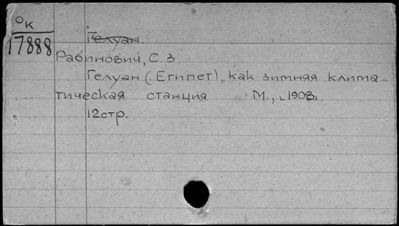 ОК
17888
Гелуан.
Рабинович, С. З
Гелуан (Египет), как зимняя клима-
тическая станция М., 1908.
12стр.